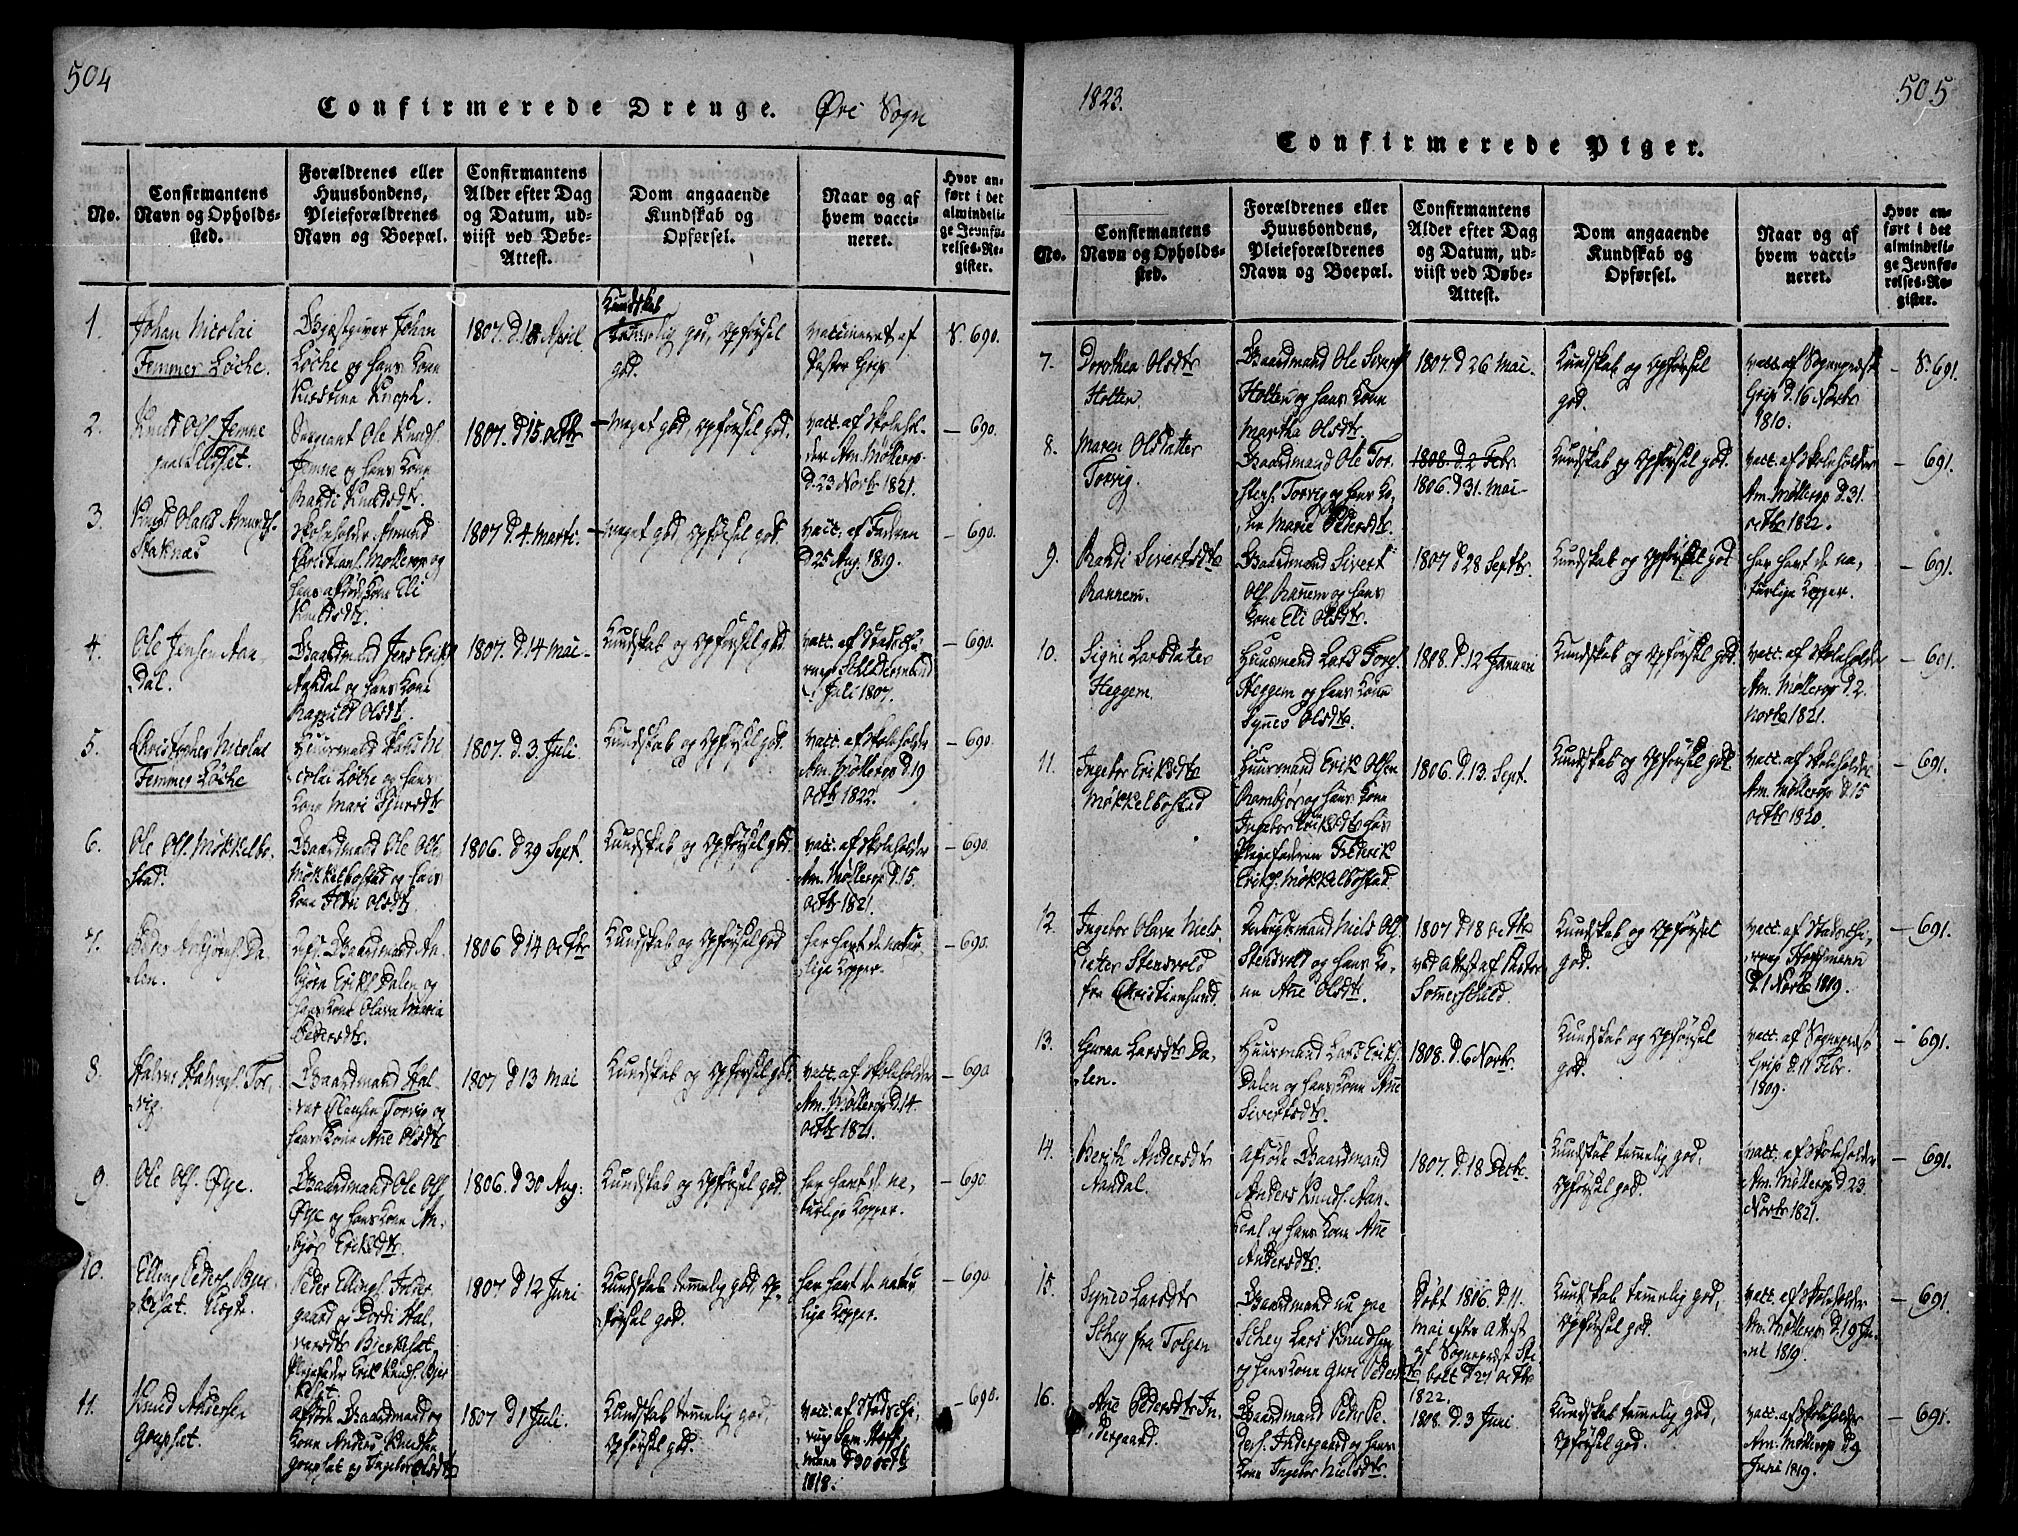 504
Confirmerede Drenge. Øre Sogn
No.
Confirmantens Navn og Opholdssted.
Forældrenes eller Huusbondens, Pleieforældrenes Navn og Boepæl.
Confirmantens Alder efter Dag og Datum, udviist ved Døbe-Attest.
Dom angaaende Kundskab og Opførsel.
Naar og af hvem vaccineret.
Hvor anført i det almindelige Jevnførelses-Register.
1.
Johan Nicolai
Femmer Löche.
Giæstgiver Johan
Löche og hans Kone
Kristina Knoph.
1807. d. April
Kundskab
temmelig god, Opførsel
god.
vaccineret af
Pastor Grip
S. 690.
2.
Knud Ols. Jemne
Sergeant Ole Knuds.
Jemne og hans Kone
Randi Knudsdtr
1807. d. 15. octbr
Meget god Opførsel god.
vacc. af Skolehol-
der Am. Møllerop
d. 23 Novbr 1821.
– 690.
3.
Knud Olaus Amunds.
Staknæs
Skoleholder Amund
Christians. Møllerop og
hans afdöde Kone Eli
Knudsdtr.
1807 d. 4. Marti.
Meget god Opførsel god.
vacc. af Faderen
d 25 Aug. 1819.
– 690.
4.
Ole Jensen Aan-
dal.
Gaardmand Jens Eriks.
Aandal og hans Kone
Ragnild Olsdtr.
1807. d. 14 Mai
Kundskab og Opførsel god
vacc. af Stadschi-
rurg
Juli 1807.
– 690.
5.
Christopher Nicolai
Femmer Löche
Huusmand Ni-
colai Löche og hans
Kone Mari
1807. d. 3. Juli
Kundskab og Opførsel god.
vacc. af Skoleholder
Am. Møllerop d. 19
octbr 1822.
– 690.
6.
Ole Ols. Møkkelbo-
stad.
Gaardmand Ole Ols.
Møkkelbostad og hans
Kone Olsdtr
1806. d 29 Sept.
Kundskab og Opførsel god.
vacc. af Skoleholder
Am. Møllerop d. 15.
octbr 1821.
– 690.
7.
Peder Da-
len.
Gaardmand An-
biörn Eriks Dalen og
hans Kone Olava Maria
Pedersdtr.
1806 d 14 octbr
Kundskab og Opførsel god
har havt de natur-
lige Kopper.
– 690.
8.
Halvor Halvors. Tor-
vig.
Gaardmand Hal-
vor Torvig og
hans Kone Ane Olsdtr
1807 d 13 Mai
Kundskab og Opførsel god
vacc. af Skoleholder
Am. Møllerop d. 14.
octbr 1821.
– 690
9.
Ole Ols. Øye.
Gaardmand Ole Ols.
Øye og hans Kone An-
biör Eriksdtr
1806. d 30 Aug:
Kundskab og Opførsel god.
har havt de na-
turlige Kopper.
– 690.
10.
Elling Peders. Bjer-
keset.
Peder Ellings. Inder-
gaard og Dordi Hal-
varsdtr Bjerkeset
Pleiefader Erik Knuds. Bjer-
keset.
1807 d 12 Juni
Kundskab temmelig god, Op-
førsel god.
har havt de natur-
lige Kopper.
– 690
11.
Knud Andersen
Goupset.
afdöde Gaardmand og
Kone Anders Knudsen
Goupset og Ingebor Olsdtr
1807 d 1 Juli.
Kundskab temmelig god
Opførsel god.
vacc. af Stadschi-
rurg Hoff-
mann d 30 octb
1818.
– 690.
1823.
505
Confirmerede Piger.
No.
Confirmantens Navn og Opholdssted.
Forældrenes eller Huusbondens, Pleieforældrenes Navn og Boepæl.
Confirmantens Alder efter Dag og Datum, udviist ved Døbe-Attest.
Dom angaaende Kundskab og Opførsel.
Naar og af hvem vaccineret.
Hvor anført i det almindelige Jevnførelses-Register.
7.
Dorothea Olsdtr
Holten.
Gaardmand Ole Sivers.
Holten og hans Kone
Martha Olsdtr
1807. d 26 Mai
Kundskab og Opførsel
god.
vacc. af Sognepræst
Grip d. 16 Novbr
1810.
– S. 691.
8.
Maren Olsdatter
Torvig.
Gaardmand Ole Tor-
stens. Torvig og hans Ko-
ne Marie Pedersdtr.
1808. d. 2 Febr
1806. d 31. Mai
Kundskab og Opførsel god.
vacc. af Skoleholder
Am. Møllerop d. 31.
octbr 1822.
– 691.
9.
Randi Sivertsdtr
Rannem.
Gaardmand Sivert
Ols. Rannem og hans
Kone Eli Olsdtr.
1807 d 28 Septbr.
Kundskab og Opførsel god
har havt de na-
turlige Kopper.
– 691.
10.
Signe Larsdatter
Heggem.
Huusmand Lars
Heggem og hans Kone
Synev Olsdtr.
1808. d. 12 Januari
Kundskab og Opførsel god.
vacc. af Skoleholder
Am. Møllerop d. 2.
Novbr 1821.
– 601.
11.
Ingebor Eriksdtr
Møkkelbostad
Huusmand Erik Olsen
og hans Kone
Ingebor
Pleiefaderen Frederik
Eriks. Møkkelbostad.
1806. d. 13. Sept.
Kundskab og Opførsel god.
vacc. af Skoleholder
Am. Møllerop d. 15
octbr 1820.
– 691.
12.
Ingebor Olava Niels-
datter Stensvold
fra Christiansund.
Niels Ols.
Stensvold og hans Ko-
ne Ane Olsdtr.
1807 d 18 octbr
ved Attest af Pastor
Sommerschield.
Kundskab og Opførsel
god.
vacc. af Stadschi-
rurg Hoffmann
d. 1 Novbr 1819.
– 691.
13.
Guroa Larsdtr Da-
len.
Huusmand Lars Eriks.
Dalen og hans Kone Ane
Sivertsdtr.
1808. d. 6 Novbr.
Kundskab og Opførsel
god.
vacc. af Sognepræst
Grip d. 11 Febr.
1809.
– 691.
14.
Berith Andersdtr
Aandal.
Afdöde Gaardmand
Anders Knuds. Aan-
dal og hans Kone Ane
Andersdtr.
1807. d. 18 Decbr.
Kundskab temmelig god,
Opførsel god.
vacc. af Skoleholder
Am. Møllerop d 23
Novbr 1821.
– 691.
15.
Synev Larsdtr
Schey fra Tolgen
Gaardmand nu paa
Schey Lars Knudsen
og hans Kone Guri Pedersdtr
Døbt 1806. d. 11.
Mai efter Attest
af Sognepræst
d 27 octbr
1822.
Kundskab temmelig god,
Opførsel god.
vacc. af Skoleholder
Am. Møllerop d. 19 Ju-
ni 1819.
– 691.
16.
Ane Pedersdtr In-
dergaard.
Gaardmand Peder Pe-
ders. Indergaard og hans
Kone Ingebor Nielsdtr.
1808. d. 3 Juni
Kundskab temmelig god,
Opførsel god.
vacc. af Skoleholder
Am. Møllerop d 9
Juni 1819.
– 691.